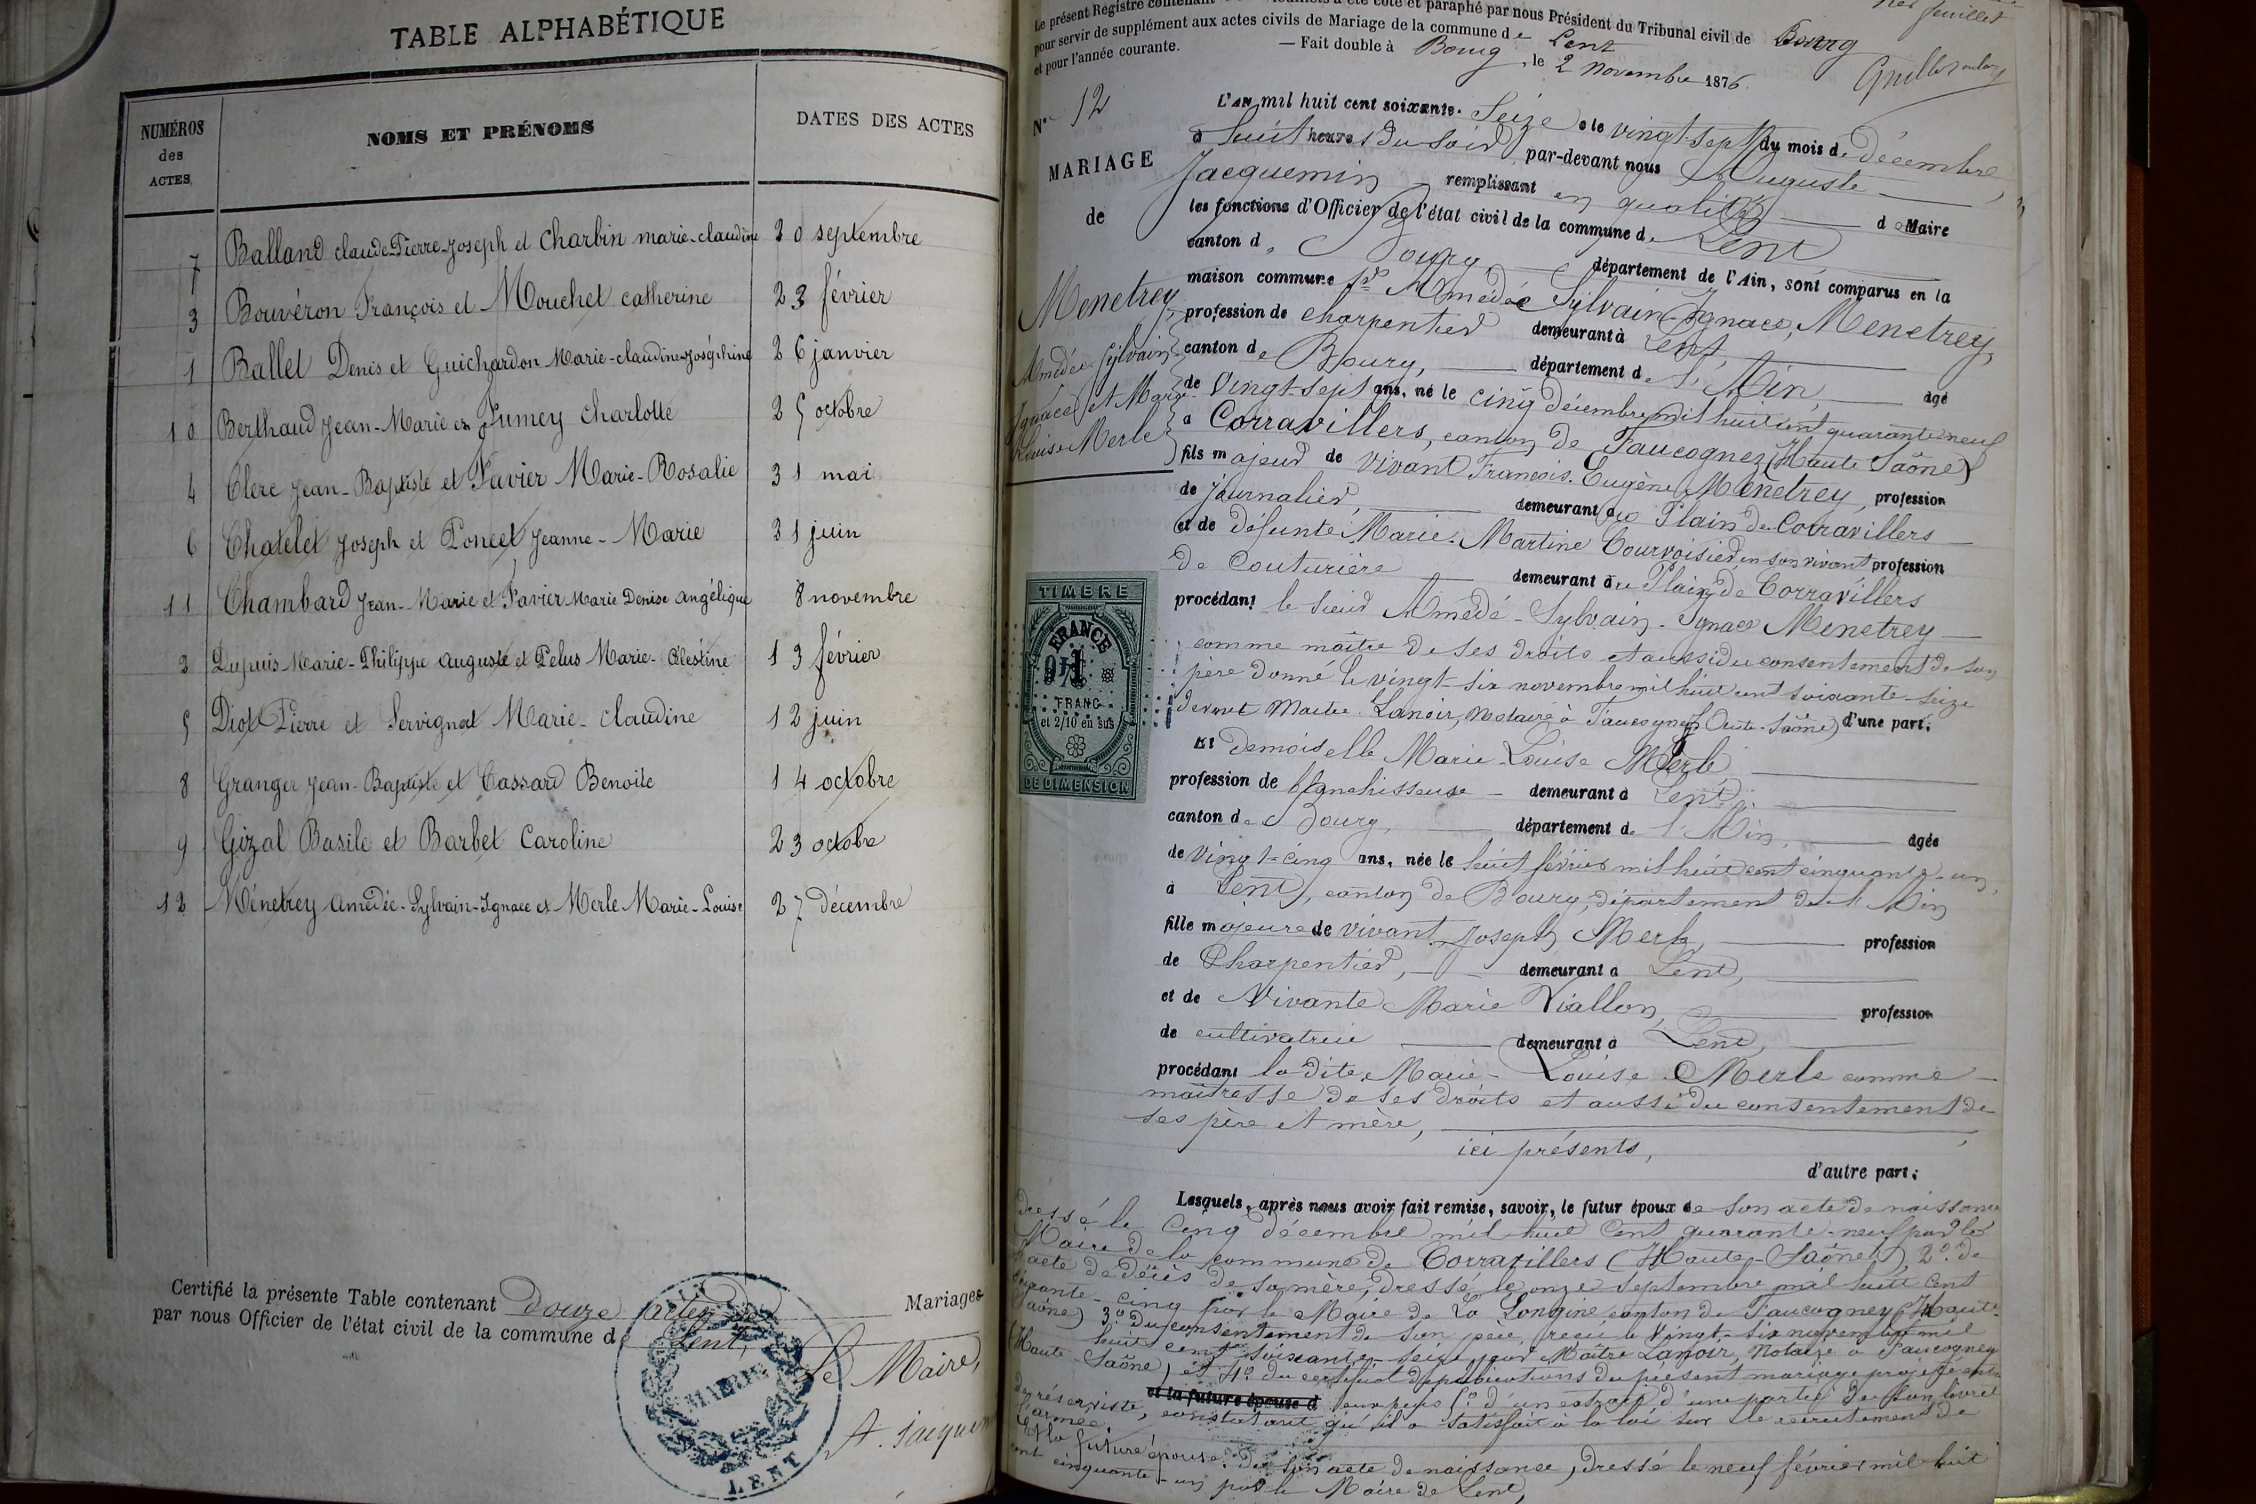 TABLE ALPHABÉTIQUE
NUMÉROS des ACTES
NOMS ET PRÉNOMS
DATES DES ACTES
7 Balland claude-Pierre-Joseph et Charbin marie-claudine 20 septembre
3 Bouvéron François et Mouchet catherine 23 février
1 Ballet Denis et Guichardon Marie-claudine-Joséphine 26 janvier
10 Berthaud Jean-Marie et Jumey Charlotte 25 octobre
4 Clerc Jean-Baptiste et Favier Marie-Rosalie 31 mai
6 Chatelet Joseph et Poncet Jeanne-Marie 31 juin
11 Chambard Jean-Marie et Favier Marie Denise Angélique 8 novembre
2 Dupuis Marie-Philippe Auguste et Pelus Marie-Célestine 13 février
5 Diot Pierre et Servignat Marie-Claudine 12 juin
8 Granger Jean-Baptiste et Cassard Benoite 14 octobre
9 Gizal Basile et Barbet Caroline 23 octobre
12 Ménetrey Amédée-Sylvain-Ignace et Merle Marie-Louise 27 décembre
Certifié la présente Table contenant douze actes de Mariages
par nous Officier de l'état civil de la commune de Lent,
Le Maire,
A. Jacquemin
MAIRIE
LENT
Le présent Registre contenant été coté et paraphé par nous Président du Tribunal civil de Bourg
pour servir de supplément aux actes civils de Mariage de la commune de Lent
et pour l'année courante. — Fait double à Bourg, le 2 novembre 1876.
feuillet
N° 12
MARIAGE
de
Menetrey,
Amédée Sylvain
Ignace et Marie
Louise Merle
L'AN mil huit cent soixante-Seize le vingt-sept du mois de décembre,
à huit heures du soir par-devant nous Auguste
Jacquemin remplissant en qualité de Maire
les fonctions d'Officier de l'état civil de la commune de Lent
canton de Bourg, département de l'Ain, sont comparus en la
maison commune Sr Amédée Sylvain-Ignace, Menetrey,
profession de charpentier demeurant à Lent,
canton de Bourg, département de l'Ain, âgé
de vingt-sept ans, né le cinq décembre mil huit cent quarante neuf
à Corravillers, canton de Faucogney (Haute Saône)
fils majeur de vivant François-Eugène Menetrey, profession
de journalier, demeurant au Plain de Corravillers
et de défunte Marie-Martine Courvoisier en son vivant profession
de Couturière demeurant au Plain de Corravillers
procédant le sieur Amédé-Sylvain-Ignace Menetrey
comme maître de ses droits et aussi du consentement de son
père donné le vingt-six novembre mil huit cent soixante-seize
devant Maître Lanoir, Notaire à Faucogney (Haute-Saône) d'une part.
Et demoiselle Marie-Louise Merle,
profession de blanchisseuse demeurant à Lent,
canton de Bourg, département de l'Ain, âgée
de vingt-cinq ans, née le huit février mil huit cent cinquante-un,
à Lent, canton de Bourg, département de l'Ain
fille majeure de vivant Joseph Merle, profession
de Charpentier, demeurant à Lent,
et de Vivante Marie Viallon, profession
de cultivatrice demeurant à Lent,
procédant la dite Marie-Louise Merle comme
maîtresse de ses droits et aussi du consentement de
ses père et mère,
ici présents,
d'autre part;
Lesquels, après nous avoir fait remise, savoir, le futur époux de son acte de naissance
dressé le cinq décembre mil huit cent quarante-neuf par le
Maire de la commune de Corravillers (Haute-Saône), 2° de
l'acte de décès de sa mère, dressé le onze septembre mil huit cent
soixante-cinq par le Maire de La Longine canton de Faucogney (Haute-
Saône) 3° du consentement de son père, reçu le vingt-six novembre mil
huit cent soixante-seize par Maître Lanoir, Notaire à Faucogney
(Haute-Saône) et 4° du certificat de publications du présent mariage projeté
et la future épouse d 5° d'un extrait d'une partie de son livret
de réserviste, constatant qu'il a satisfait à la loi sur le recrutement de
l'armée
Et la future épouse: de son acte de naissance, dressé le neuf février mil huit
cent cinquante-un par le Maire de Lent,
TIMBRE
FRANCE
1
FRANC
et 2/10 en sus
DE DIMENSION